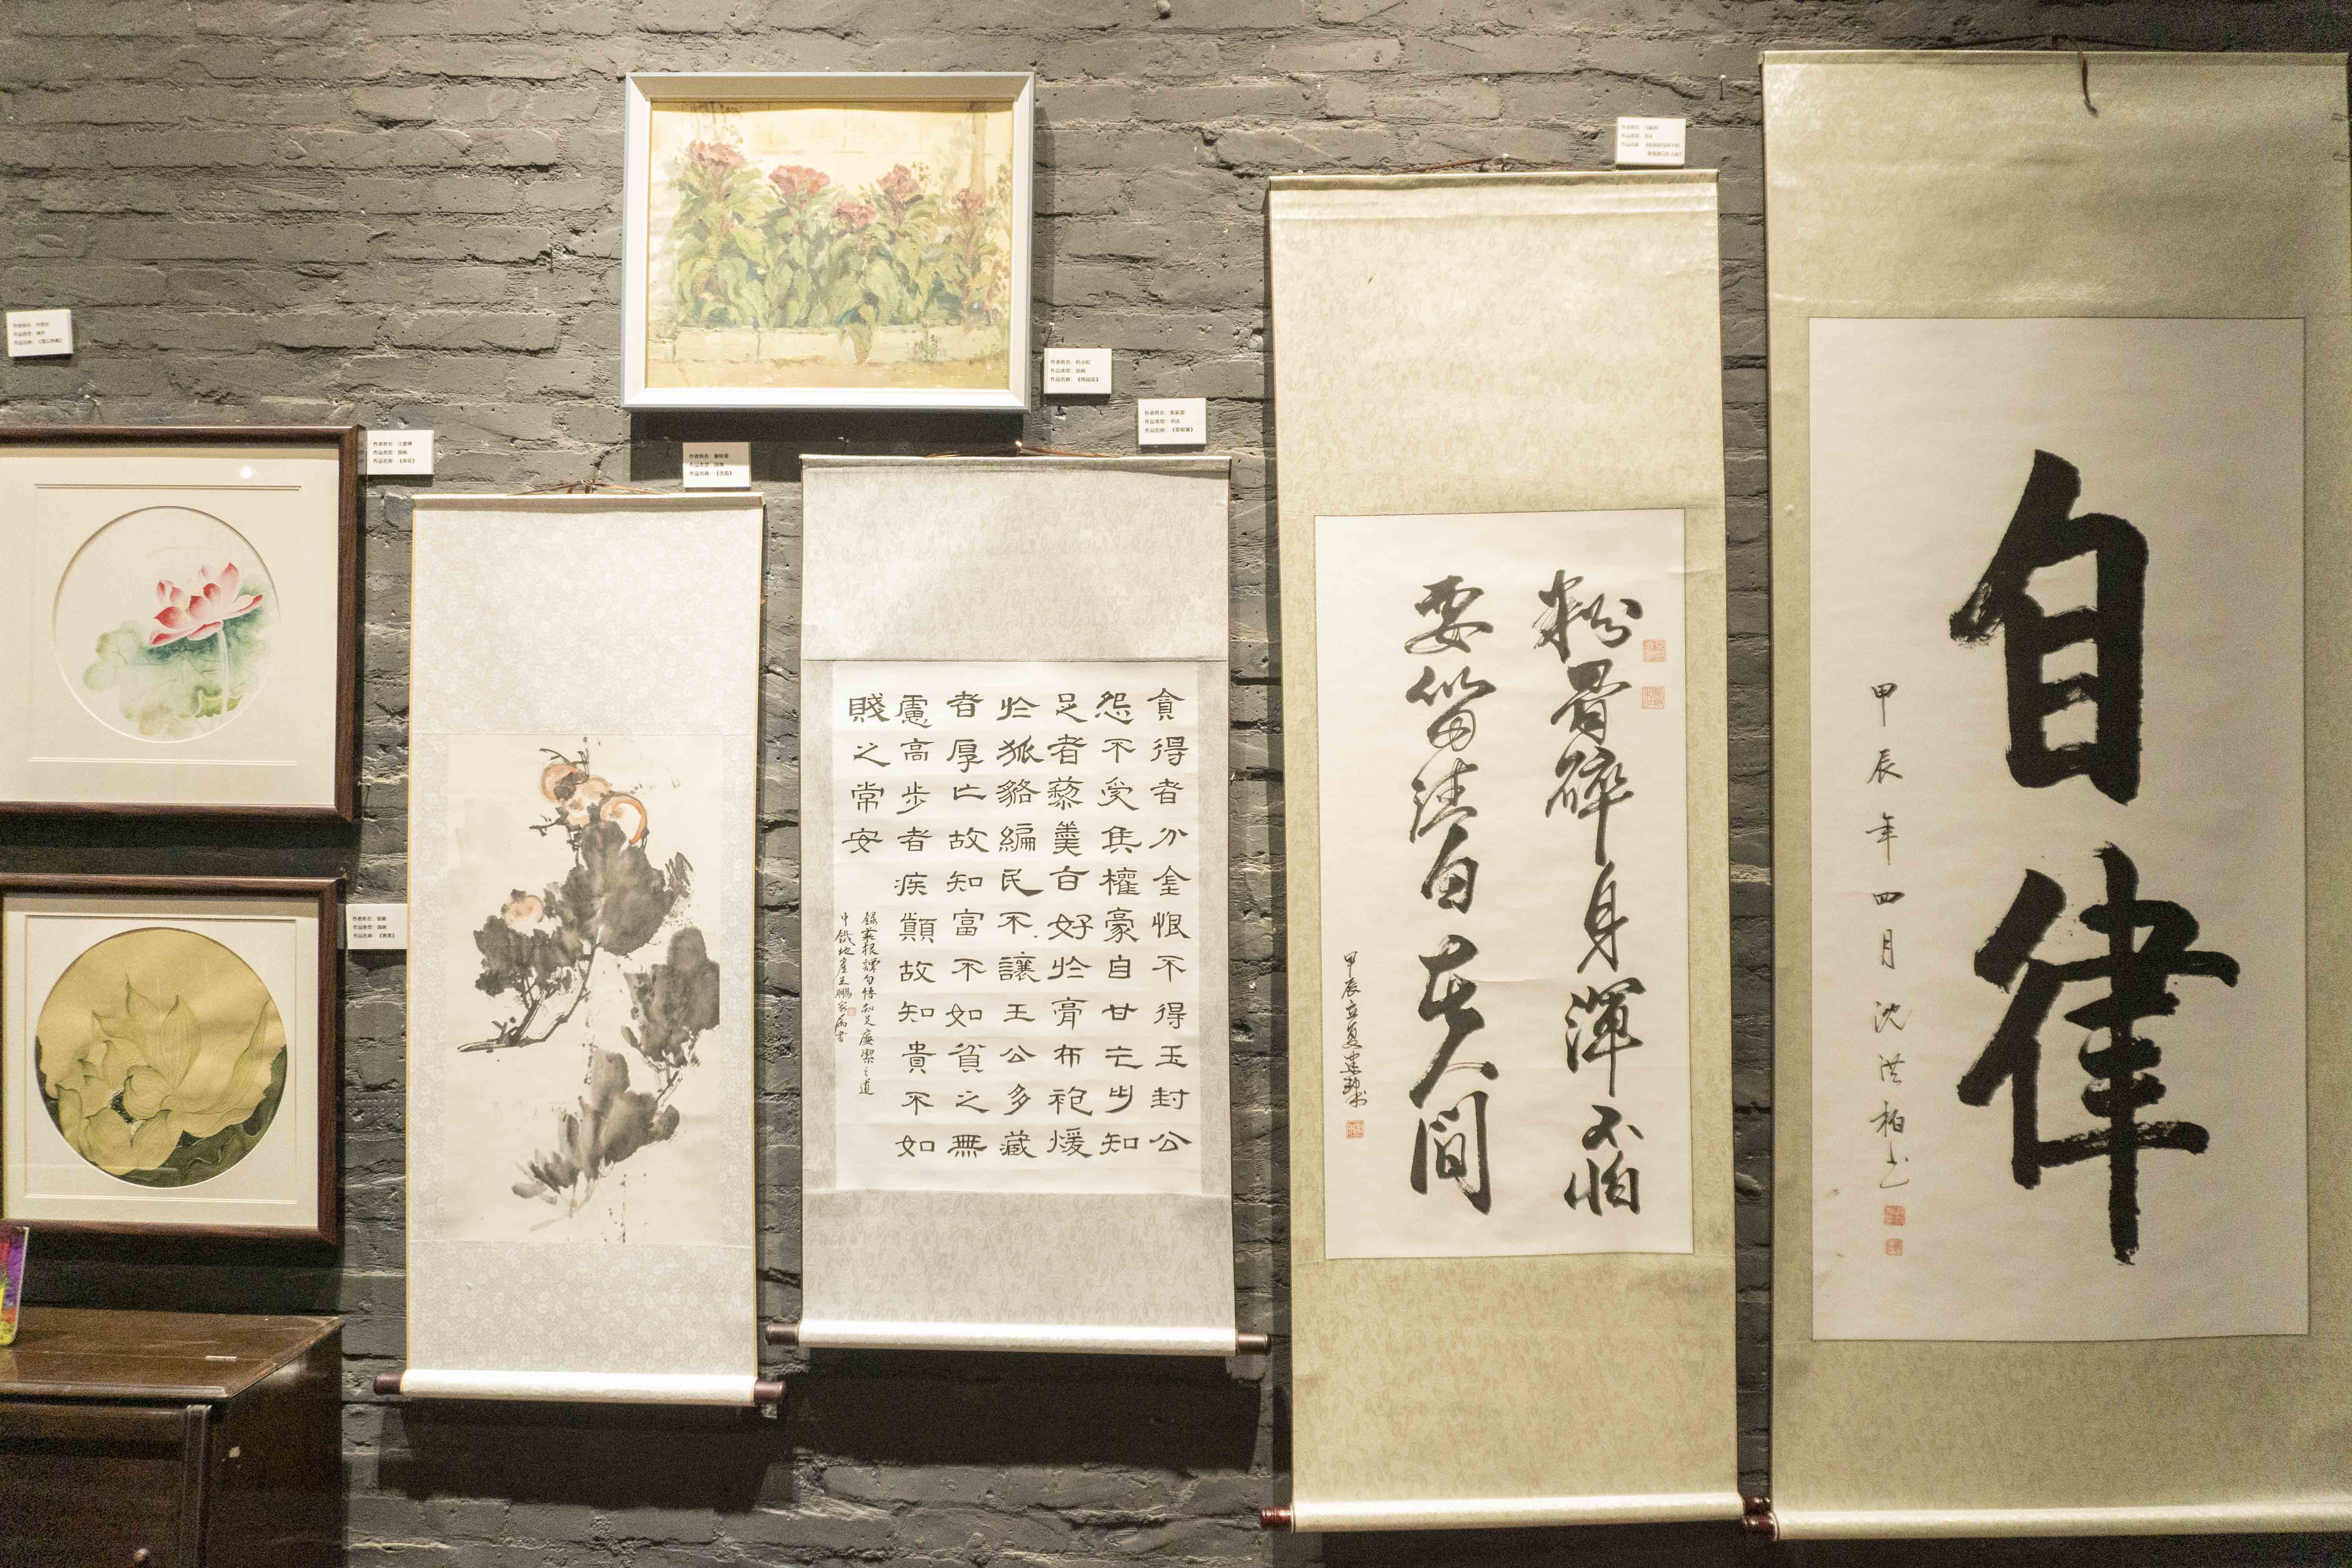 自律
甲辰年四月沈洪柏书
粉骨碎身渾不怕
要留清白在人間
甲辰立夏
貪得者分金恨不得玉封公
怨不受矦權豪自甘乞丐知
足者藜羹旨好於膏布袍煖
於狐貉編民不讓王公多藏
者厚亡故知富不如貧之無
慮高步者疾顛故知貴不如
賤之常安
錄菜根譚句悟知足廉潔之道
作者姓名:
作品类型: 书法
作品名称:
作者姓名:
作品类型: 书法
作品名称: 《菜根谭》
作者姓名: 杜小红
作品类型: 油画
作品名称: 《鸡冠花》
作者姓名:
作品类型: 国画
作品名称:
作者姓名:
作品类型: 国画
作品名称: 《荷花》
作者姓名:
作品类型: 国画
作品名称:
作者姓名:
作品类型:
作品名称: